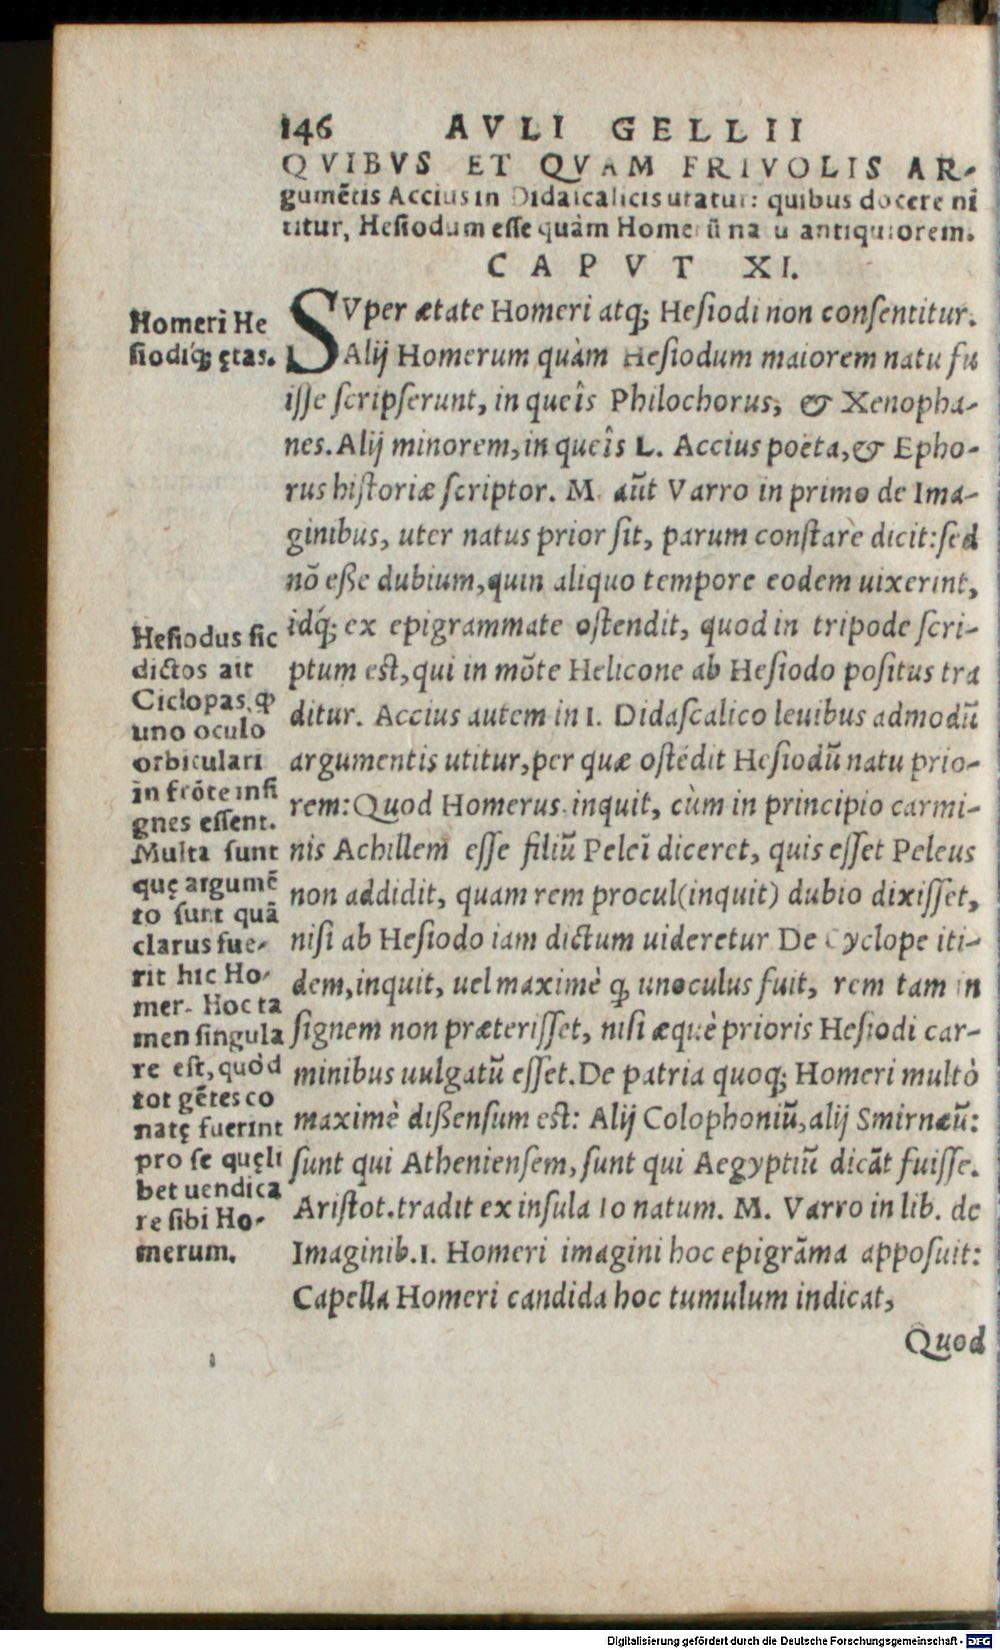 146 AVLI GELLII
QVIBVS ET QVAM FRIVOLIS AR-
gumētis Accius in Didascalicis utatur: quibus docere ni
titur, Hesiodum esse quàm Homerū natu antiquiorem.
CAPVT XI.
Homeri He
siodiq́; ętas.
SVper ætate Homeri atq; Hesiodi non consentitur.
Alij Homerum quàm Hesiodum maiorem natu fu
isse scripserunt, in queîs Philochorus, & Xenopha-
nes. Alij minorem, in queîs L. Accius poëta, & Epho-
rus historiæ scriptor. M. aūt Varro in primo de Ima-
ginibus, uter natus prior sit, parum constare dicit: sed
nō eße dubium, quin aliquo tempore eodem uixerint,
idq́; ex epigrammate ostendit, quod in tripode scri-
ptum est, qui in mōte Helicone ab Hesiodo positus tra
ditur. Accius autem in I. Didascalico leuibus admodū
argumentis utitur, per quæ ostēdit Hesiodū natu prio-
rem: Quod Homerus, inquit, cùm in principio carmi-
nis Achillem esse filiū Peleī diceret, quis esset Peleus
non addidit, quam rem procul (inquit) dubio dixisset,
nisi ab Hesiodo iam dictum uideretur De Cyclope iti-
dem, inquit, uel maximè ꝙ unoculus fuit, rem tam in
signem non præterisset, nisi æquè prioris Hesiodi car-
minibus uulgatū esset. De patria quoq; Homeri multò
maximè dißensum est: Alij Colophoniū, alij Smirnæū:
sunt qui Atheniensem, sunt qui Aegyptiū dicāt fuisse.
Aristot. tradit ex insula Io natum. M. Varro in lib. de
Imaginib. I. Homeri imagini hoc epigrāma apposuit:
Capella Homeri candida hoc tumulum indicat,
Quod
Hesiodus sic
dictos ait
Ciclopas, ꝙ
uno oculo
orbiculari
in frōte insi
gnes essent.
Multa sunt
quę argumē
to sunt quā
clarus fue-
rit hic Ho-
mer. Hoc ta
men singula
re est, quòd
tot gētes co
natę fuerint
pro se quęli
bet uendica
re sibi Ho-
merum.
Digitalisierung gefördert durch die Deutsche Forschungsgemeinschaft - DFG